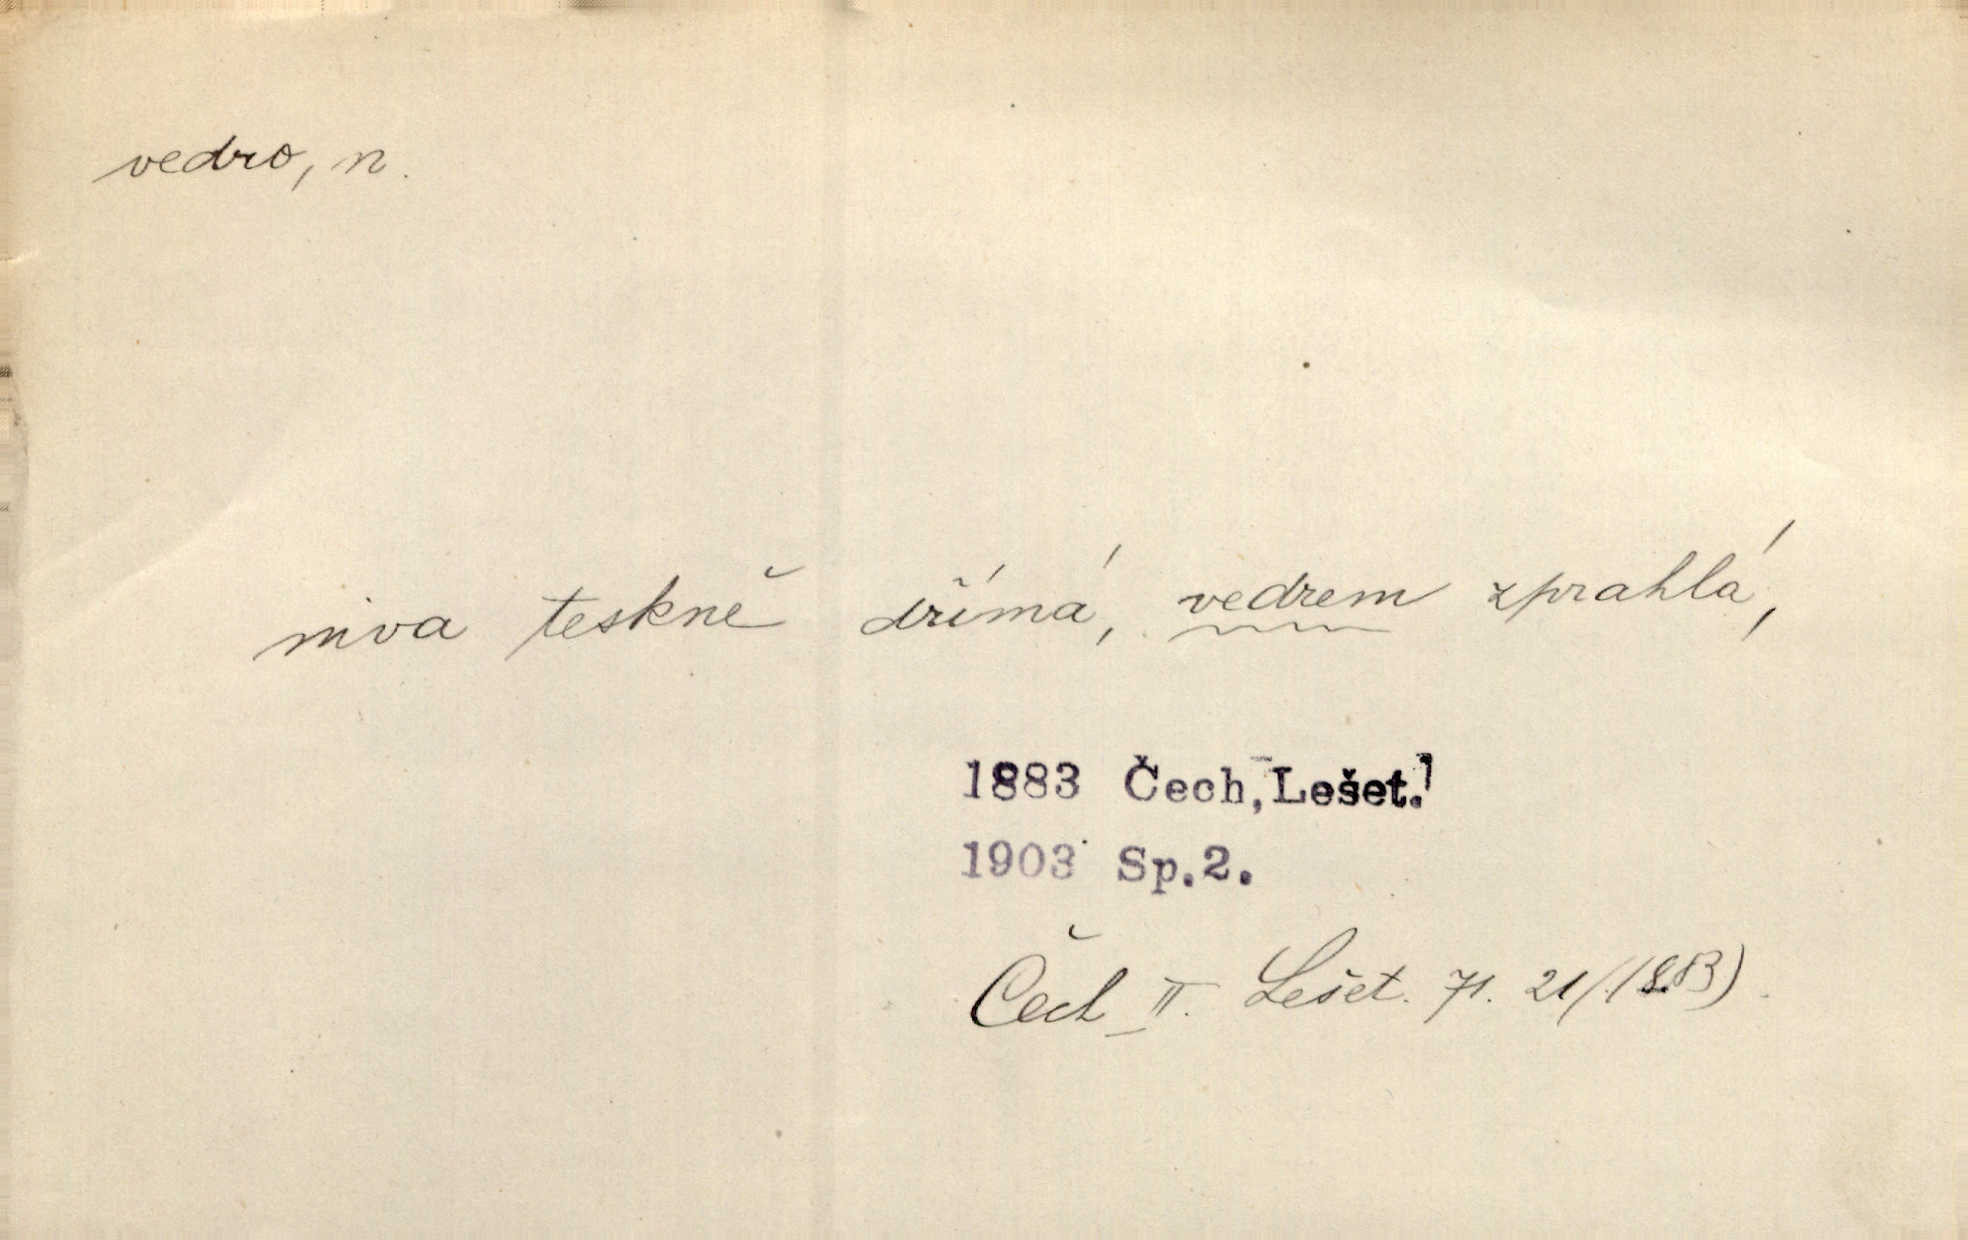 vedro, n.
niva teskně dřímá, vedrem zprahlá,
1883 Čech, Lešet.
1903 Sp.2.
Čech II. Lešet. 71. 21/(1883)